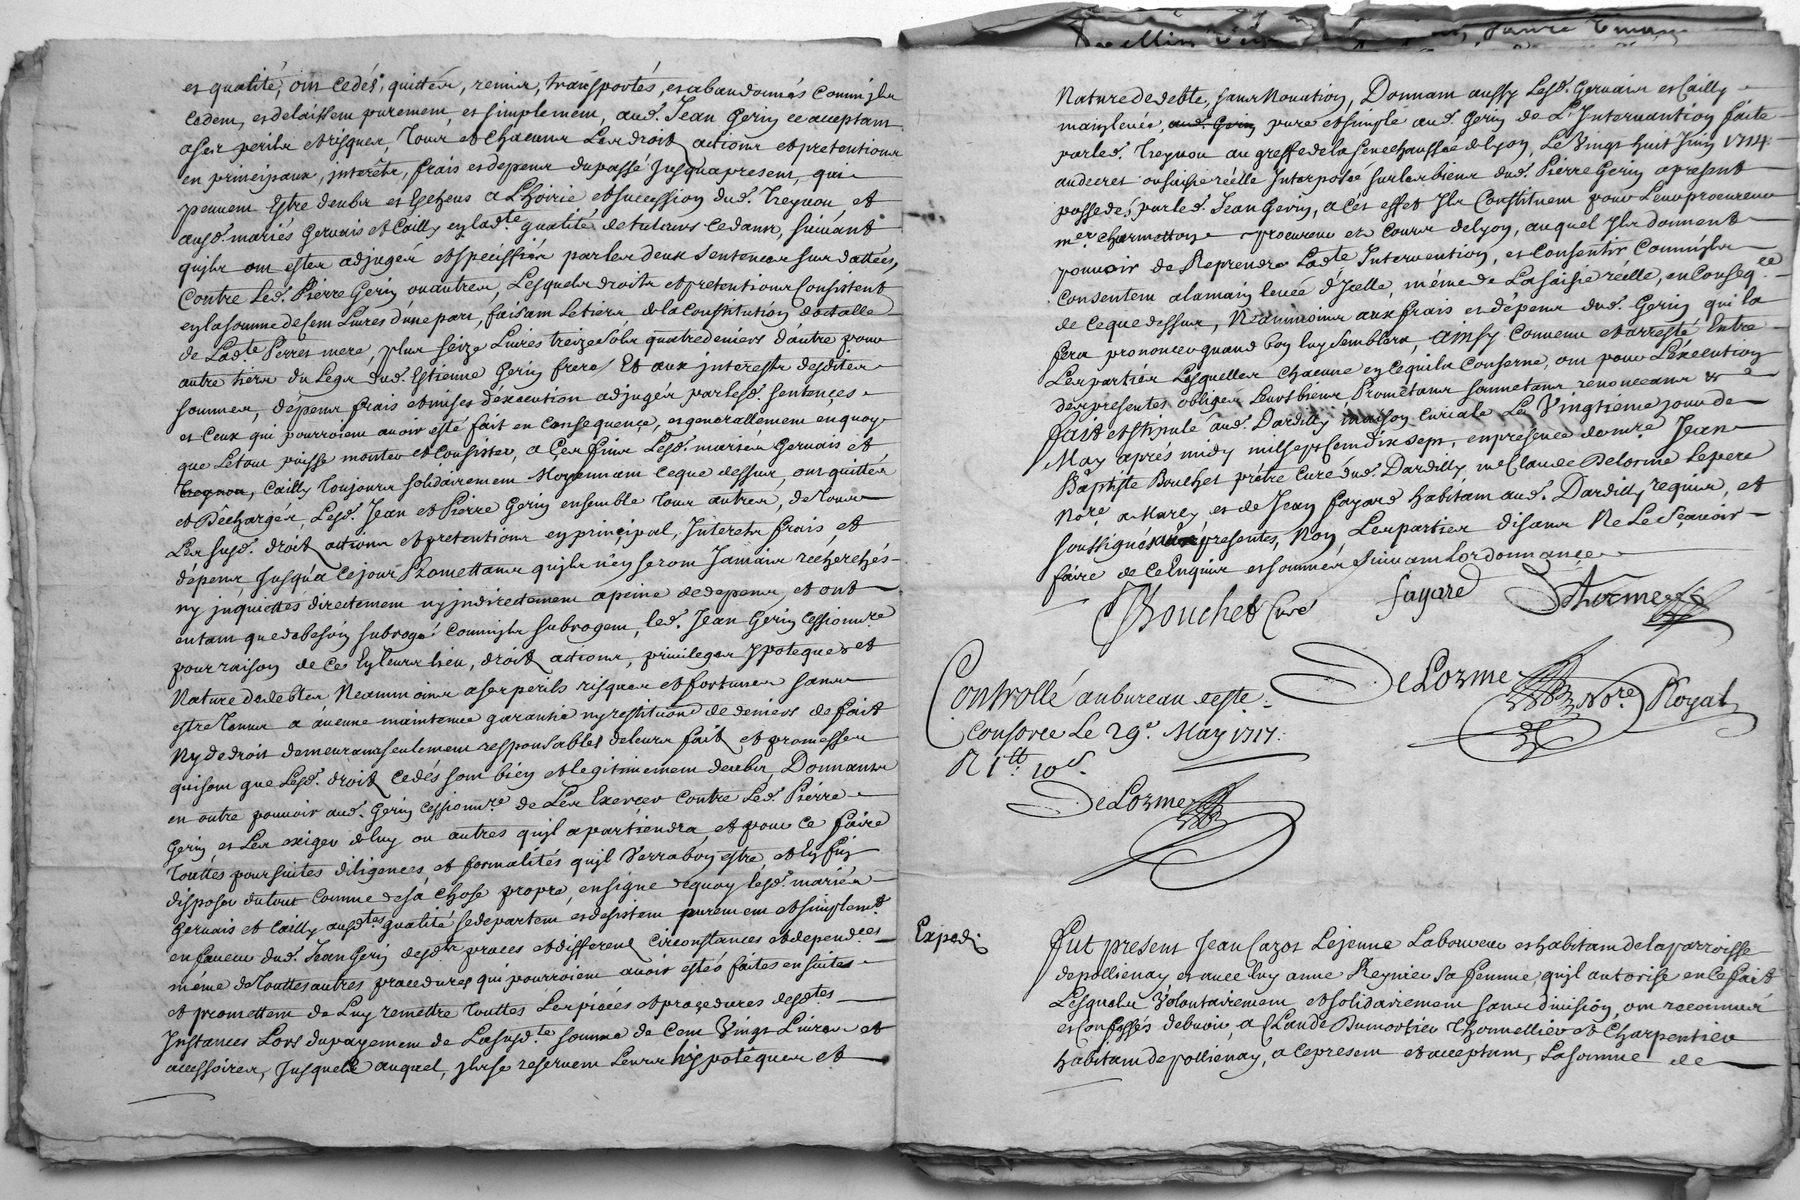 et qualité, ont cedés, quittés, remis, transportés, et abandonnés comm'jls
cedent, et delaissent purement, et simplement, aud. Jean Gerin ce acceptant
a ses perils et risques, tous et chacuns les droits actions et pretentions
en principaux, jnterêts, frais et depens du passé jusqu'a present, qui
peuvent estre deubs et escheus a L'hoirie et succession dud. Treynou, et
ausd. mariés Gervais et Cailly en lad.te qualité de tuteurs cedans, suivant
qu'jls ont estés adjugés et speciffiés par les deux sentences sus dattées,
Contre Led. Pierre Gerin ou autres, Lesquels droits et pretentions Consistent
en la somme de Cent Livres d'une part, faisant Le tiers de la Constitution dotalle
de Lad.te Perret mere, plus seize Livres treize sols quatre deniers d'autre pour
autre tiers du Legs dud. Estienne Gerin frere, Et aux jnterests desdites
sommes, dépens frais et mises d'éxecution adjugés par lesd. sentences
et Ceux qui pourroient avoir esté fait en Consequence, et generallement en quoy
que Le tout puisse monter et Consister, a Ces fins Lesd. mariés Gervais et
Treynou, Cailly toujours solidairement Moyennant Ce que dessus, ont quittés
et Déchargés, Lesd. Jean et Pierre Gerin ensemble tous autres, de tous
Les susd. droits actions et pretentions en principal, Interets frais et
dépens, jusqu'a Ce jour Promettans qu'jls n'en seront Jamais recherchés
ny jnquiettés directement ny jndirectement a peine de depens, et ont
entant que de besoin subrogé Comm'jls subrogent, led. Jean Gerin Cessionn.re
pour raison de Ces En leurs lieu, droits actions, privileges ypoteques et
Nature de debtes Neammoins a ses perils risques et fortunes sans
estre tenus a aucune maintenue garantie ny restitution de deniers de fait
Ny de droit demeurans seulement responsables de leurs faits et promesses
qui sont que Lesd. droits Cedés sont bien et legitimement deubs, Donnans
en outre pouvoir aud. Gerin Cessionn.re de Les Exercer Contre Led. Pierre
Gerin et Les exiger de luy ou autres qu'jl apartiendra, et pour Ce faire
touttes poursuites diligences, et formalités qu'jl verra bon estre, et En fin
disposer du tout Comme de sa Chose propre, en signe de quoy lesd. mariés
Gervais et Cailly ausd.tes qualité se departent et desistent purement et simplem.t
en faveur dud. Jean Gerin desd.ts procés et different Circonstances et depend.ces
méme de touttes autres procedures qui pourroient avoir estés faites ensuites
et promettent de Luy remettre touttes Les piéces et procedures desd.tes
Instances Lors du payement de La susd.te somme de Cent Vingt Livres et
accessoires, Jusques auquel, jls se reservent Leurs hypotéques et
Nature de debte, sans Novation, Donnant aussy Lesd. Gervais et Cailly
mainlevée, aud. Gerin pure et simple aud. Gerin de L'Intervention faite
par led. Treynou au greffe de la senechaussée de Lyon, Le Vingt huit Juin 1714
au decret ou saisie réélle Interposée sur les biens dud. Pierre Gerin a present
possedés par led. Jean Gerin, a Cet effet Jls Constituent pour Leur procureur
m.er Charmetton procureur es Cours de Lyon, auquel Jls donnent
pouvoir de Reprendre Lad.te Intervention, et Consentir Comm'jls
Consentent a la main levée d'jcelle, méme de La saisie réelle, en Conseq.ce
de Ce que dessus, Neammoins aux frais et dépens dud. Gerin, qui la
fera prononcer quand bon luy semblera, Ainsy Convenu et arresté Entre
Les parties Lesquelles Chacune en Ce qui la Conserne, ont pour L'éxecution
des presentes obligés Leurs biens Prometans soumetans renonceans &
fait et stipulé aud. Dardilly maison Curiale Le Vingtiéme jour de
May aprés midy mil sept Cent Dix sept, en presence de m.re Jean
Baptiste Bouchet prétre Curé dud. Dardilly, m.e Claude Delorme Le pere
No.re a Marcy, et de Jean fayard habitant aud. Dardilly requis, et
soussignés aux presentes, Non Les parties disans Ne Le Sçavoir
faire de Ce Enquis et sommés suivant Lordonnance
Bouchet Curé fayard Delorme
DeLorme No.re Royal
Controllé au bureau de ste
Consorce Le 29.e May 1717.
R 1tt 10s.
DeLorme
Exped.
fut present Jean Cazot Le jeune Laboureur et habitant de la parroisse
de pollienay et avec luy anne Reynier sa femme, qu'jl autorise en Ce fait
Lesquels Volontairement, et solidairement sans division, ont reconnus
et Confessés debvoir, a Claude Dumortier Thonnellier et Charpentier
habitant de pollienay, a Ce present et acceptant, La somme de